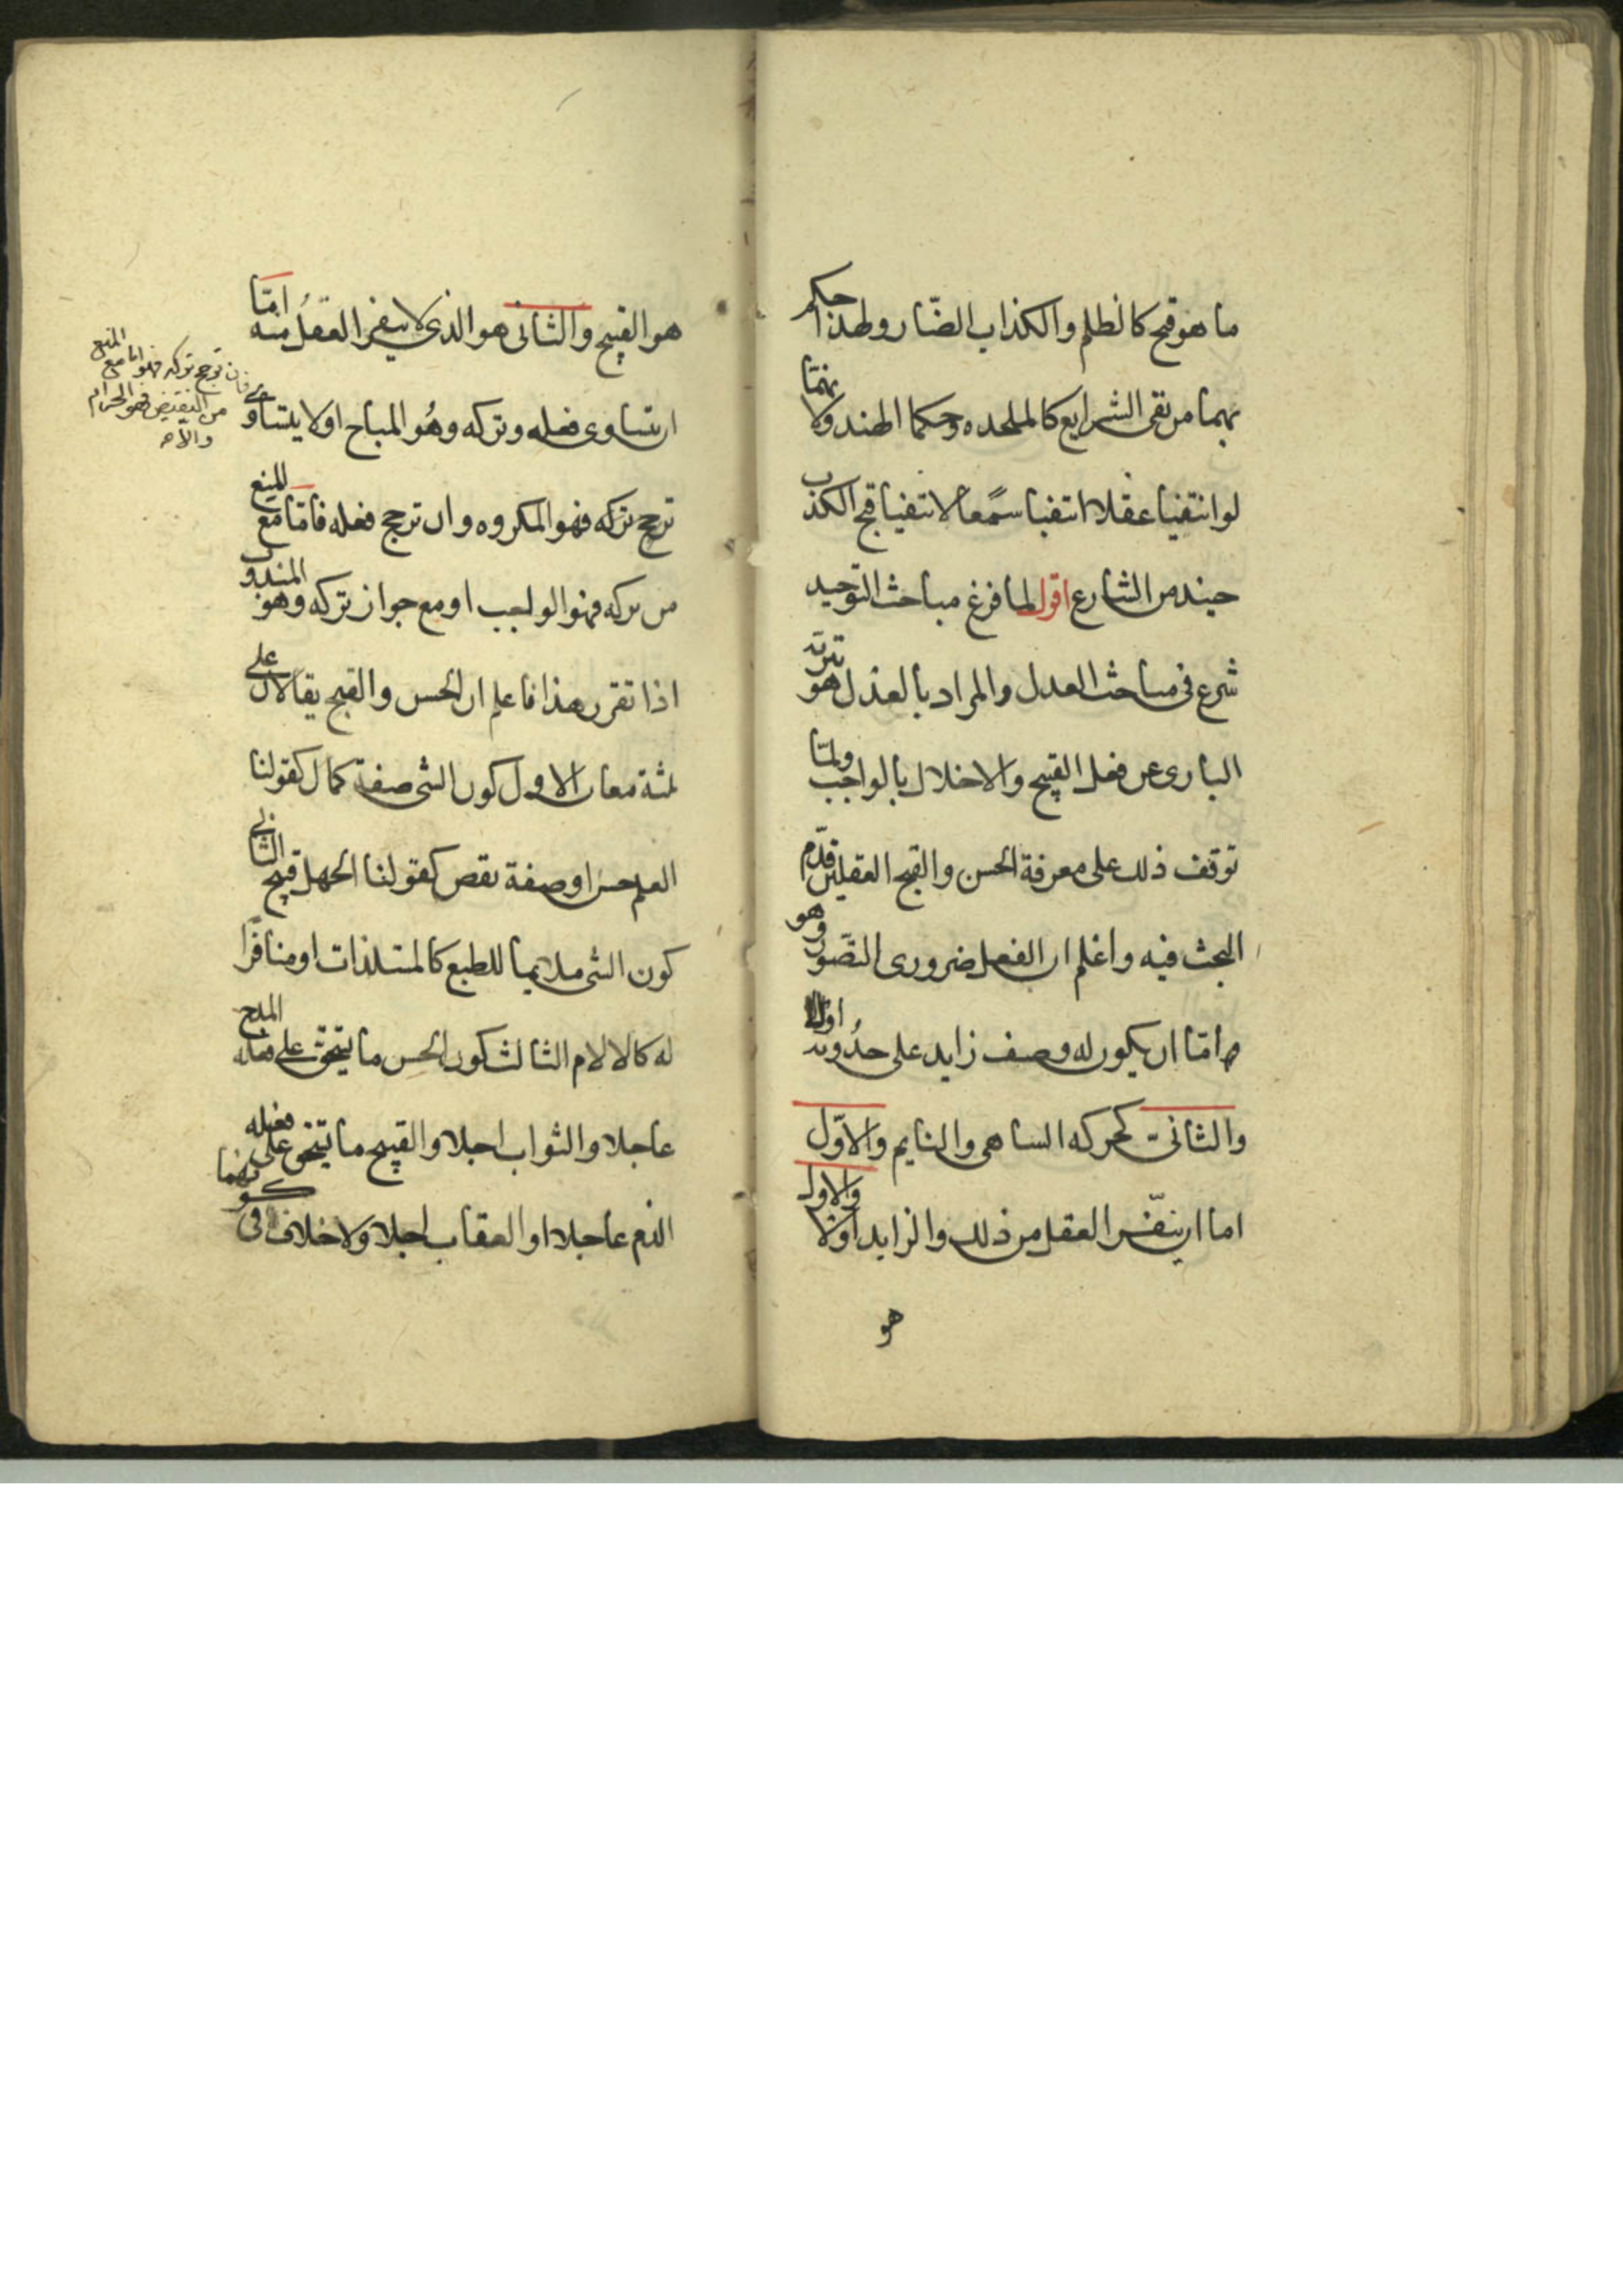 ما هو قبح كالظلم والكذاب الضّار ولهذا حكم
بهما من نفى الشرايع كالملحده وحكما الهند ولانهمّا
لو انتفيا عقلا انتفيا سمعًا لانتفيا قبح الكذب
حينيذ من الشارع اقول لما فرغ مباحث التوحيد
شرع فى مباحث العدل والمراد بالعدل هو تنزيه
البارى عن فعل القبيح والاخلال بالواجب ولمّا
توقف ذلك على معرفة الحسن والقبح العقليين قدّم
البحث فيه واعلم ان الفعل ضرورى التصّور وهو
امّا ان يكون له وصف زايد على حدُوثه اولا
والثانى كحركه الساهى والنايم والاوّل
اما ان ينفّر العقل من ذلك والزايد اولا والاول
هو
هو القبيح والثانى هو الذى لا ينفر العقلُ منه امّا
ان يتساوى فعله وتركه وهُو المباح اولا يتساوى
فان ترجح تركه فهو اما مع المنع
من النقيض فهو الحرام
والا
ترجح تركه فهو المكروه وان ترجح فعله فامّا مع المنع
من تركه فهو الواجب او مع جواز تركه وهو المندوب
اذا تقرر هذا فاعلم ان الحسن والقبح يقالان على
ثلثة معان الاول كون الشى صفة كمال كقولنا
العلم حسن او صفة نقص كقولنا الجهل قبيح الثانى
كون الشى ملايما للطبع كالمستلذات او منافّرا
له كالالام الثالث كون الحسن ما يستحق على فعله المدح
عاجلا والثواب اجلا والقبيح ما يستحق على فعله
الذم عاجلا او العقاب اجلا ولا خلاف فى كونهما